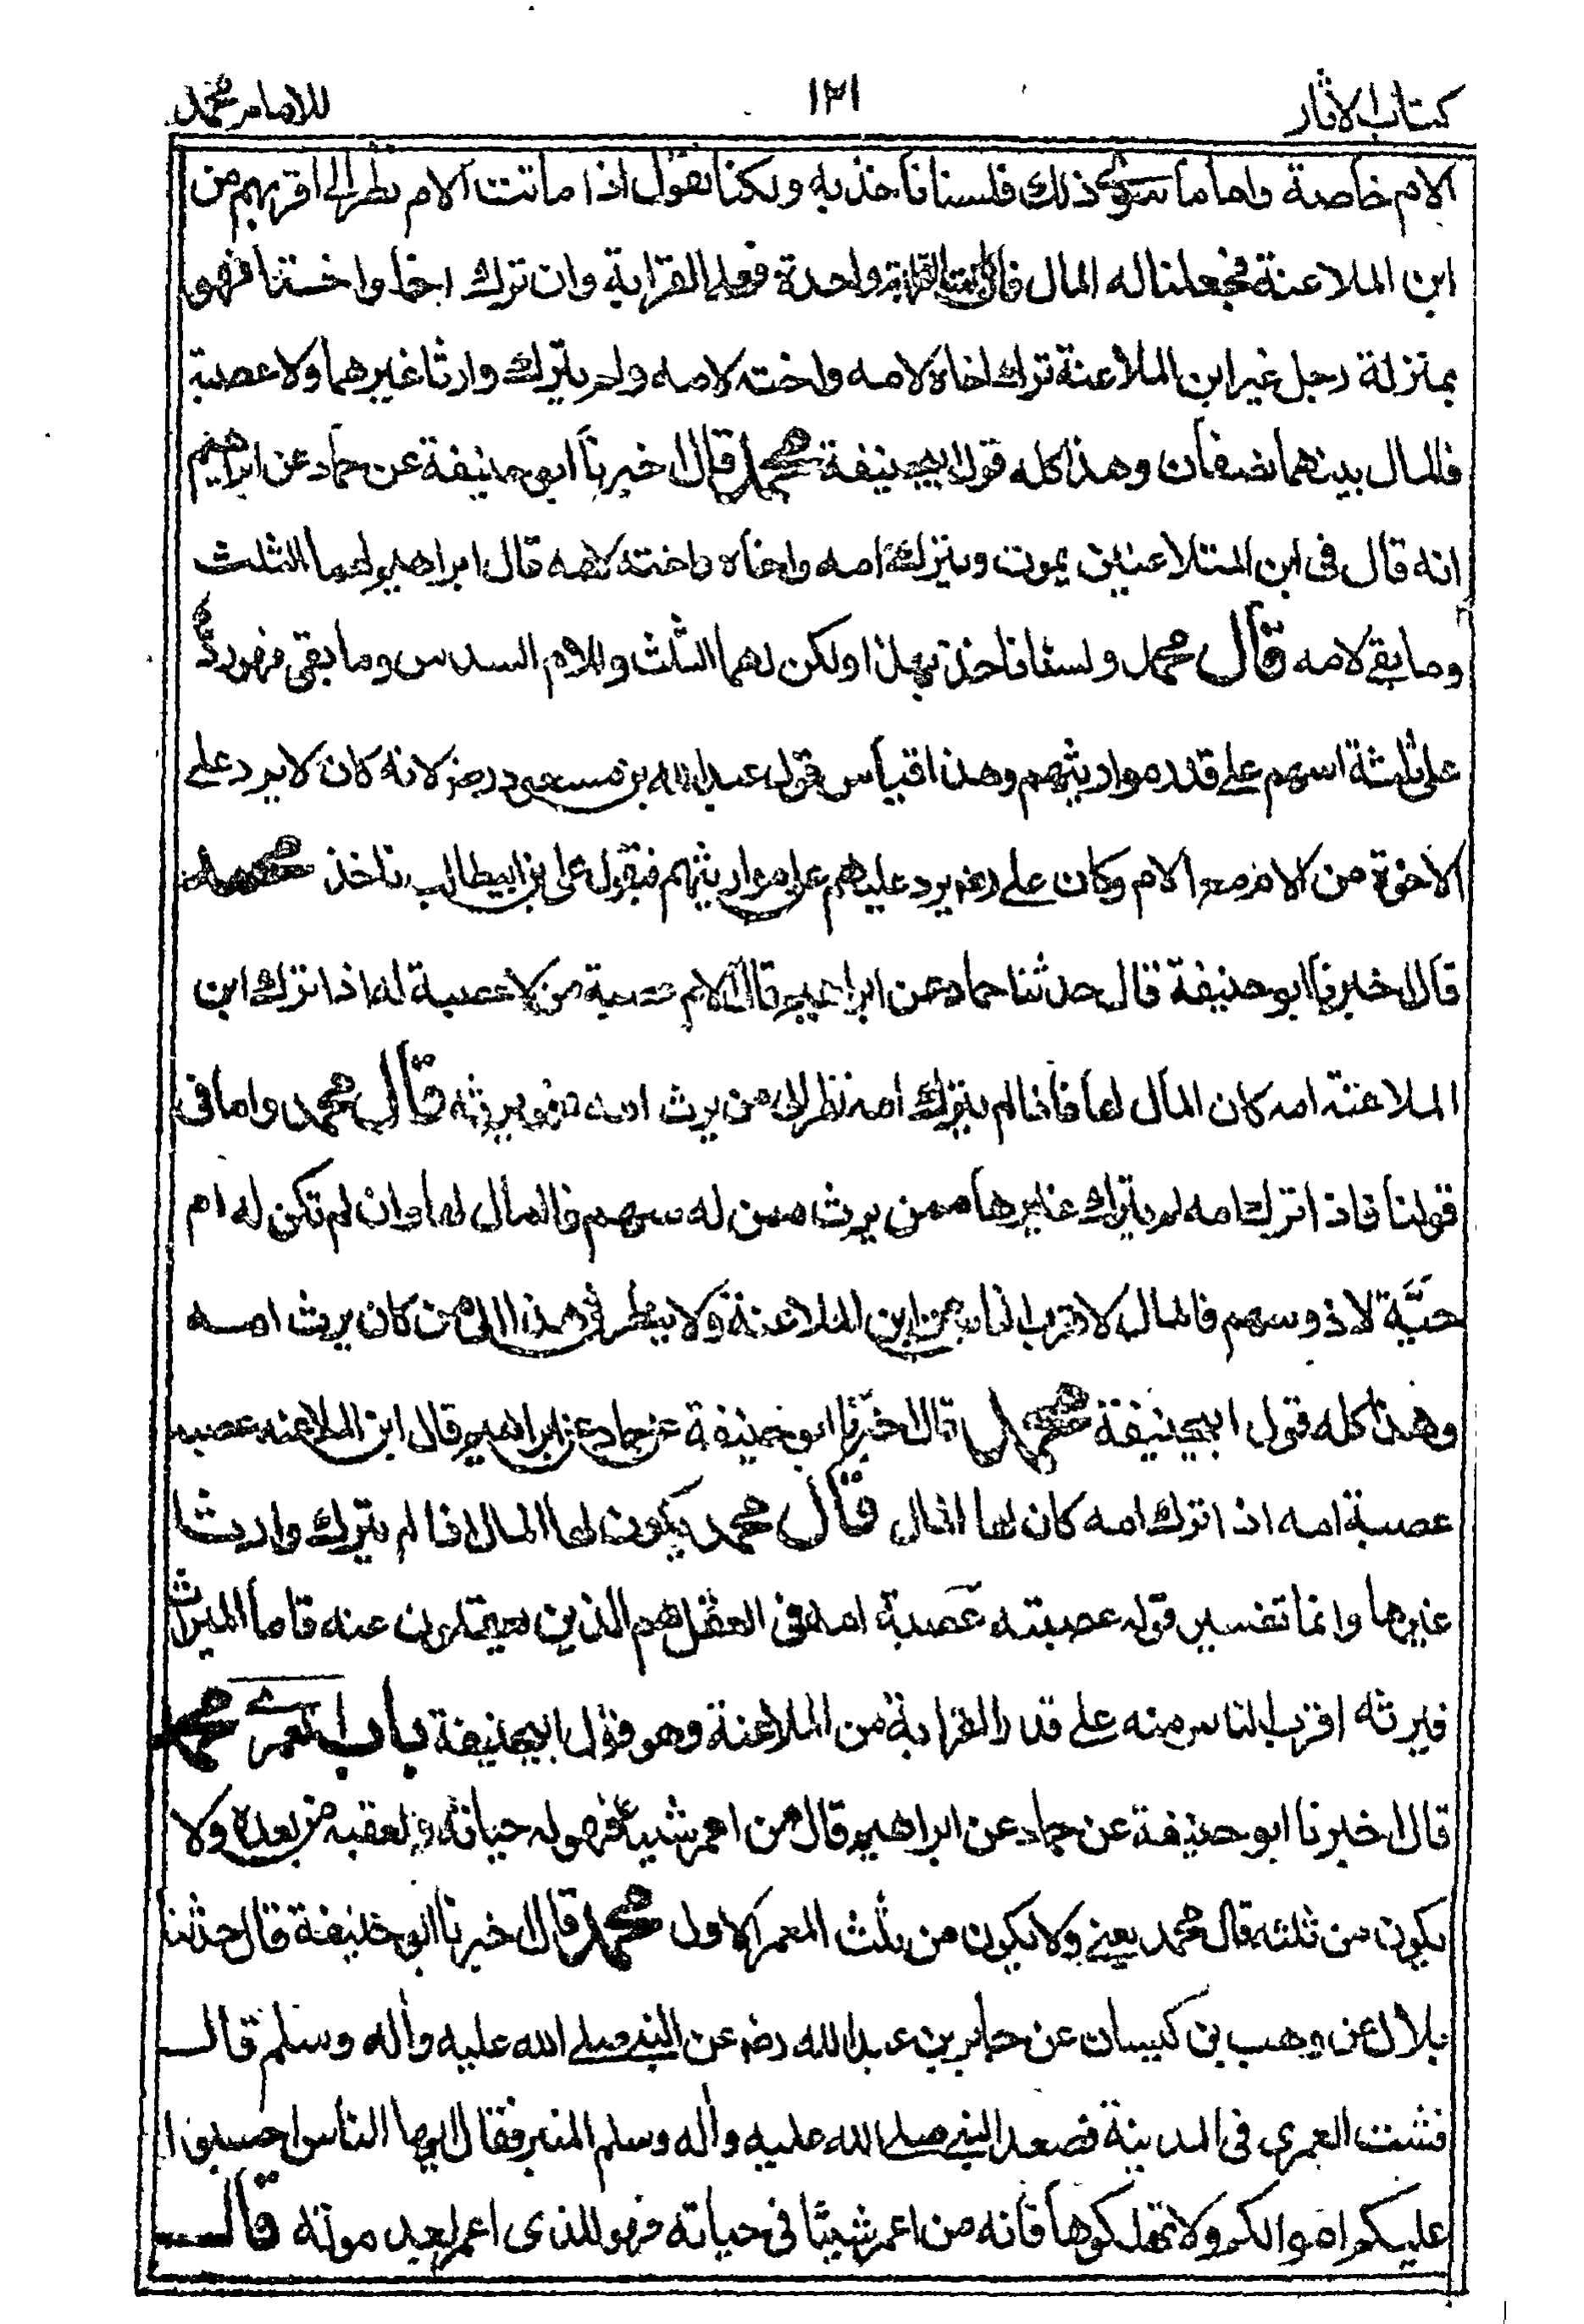 كتاب الاثار ١٢١ للامام محمد
الام خاصة واما ما سوى ذلك فلسنا ناخذ به ولكنا نقول اذا ماتت الام نظر الى اقربهم من
ابن الملاعنة فجعلنا له المال فان كانت القرابة واحدة فعلى القرابة وان ترك اخا واختا فهو
بمنزلة رجل غير ابن الملاعنة ترك اخاه لامه واخته لامه ولم يترك وارثا غيرهما ولا عصبة
فالمال بينهما نصفان وهذا كله قول ابيحنيفة محمد قال اخبرنا ابو حنيفة عن حماد عن ابراهيم
انه قال فى ابن المتلاعنين يموت ويترك امه واخاه واخته لامه قال ابراهيم لهما الثلث
وما بقے لامه قال محمد ولسنا ناخذ بهذا ولكن لهما الثلث وللام السدس وما بقى فهو رد
على ثلثة اسهم على قدر مواريثهم وهذا قياس قول عبد الله بن مسعود رضـ لانه كان لا يرد على
الاخوة من الام مع الام وكان على رضـ يرد عليهم على مواريثهم فبقول على بن ابيطالب ناخذ محمد
قال اخبرنا ابو حنيفة قال حدثنا حماد عن ابراهيم قال الام عصبة من لا عصبة له اذا ترك ابن
الملاعنة امه كان المال لها فاذا لم يترك امه نظر الى من يرث امه فهو يرثه قال محمد واما فى
قولنا فاذا ترك امه لم يترك غيرها ممن يرث ممن له سهم فالمال لها وان لم تكن له ام
حيّة لا ذو سهم فالمال لاقرب الناس من ابن الملاعنة ولا ينظر فى هذا الى من كان يرث امـه
وهذا كله قول ابيحنيفة محمد قال اخبرنا ابو حنيفة عن حماد عن ابراهيم قال ابن الملاعنه عصبه
عصبة امه اذا ترك امه كان لها المال قال محمد يكون لها المال اذا لم يترك وارثـا
غيرها وانما تفسير قوله عصبته عصبة امه فى العقل هم الذين يعقلون عنه فاما الميراث
فيرثه اقرب الناس منه على قدر القرابة من الملاعنة وهو قول ابيحنيفة باب العمرے محمد
قال اخبرنا ابو حنيفة عن حماد عن ابراهيم قال من اعمر شيئا فهو له حياته ولعقبه من بعده ولا
يكون من ثلثه قال محمد يعنے ولا يكون من ثلث المعمر الاول محمد قال اخبرنا ابو حنيفة قال حدثنا
بلال عن وهب بن كيسان عن جابر بن عبد الله رضـ عن النبى صلے الله عليه واله وسلم قال
فشت العمرى فى المدينة فصعد النبى صلے الله عليه واله وسلم المنبر فقال ايها الناس احبسوا
عليكم اموالكم ولا تهلكوها فانه من اعمر شيئا فى حياته فهو للذى اعمر بعد موته قال